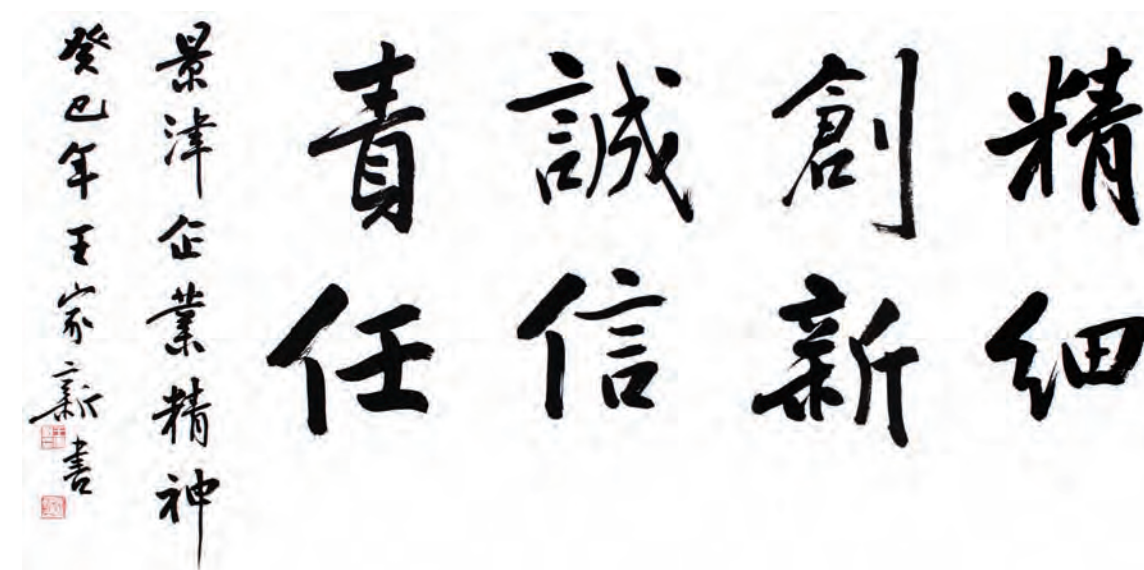 精细
創新
誠信
責任
景津企業精神
癸巳年王家新書